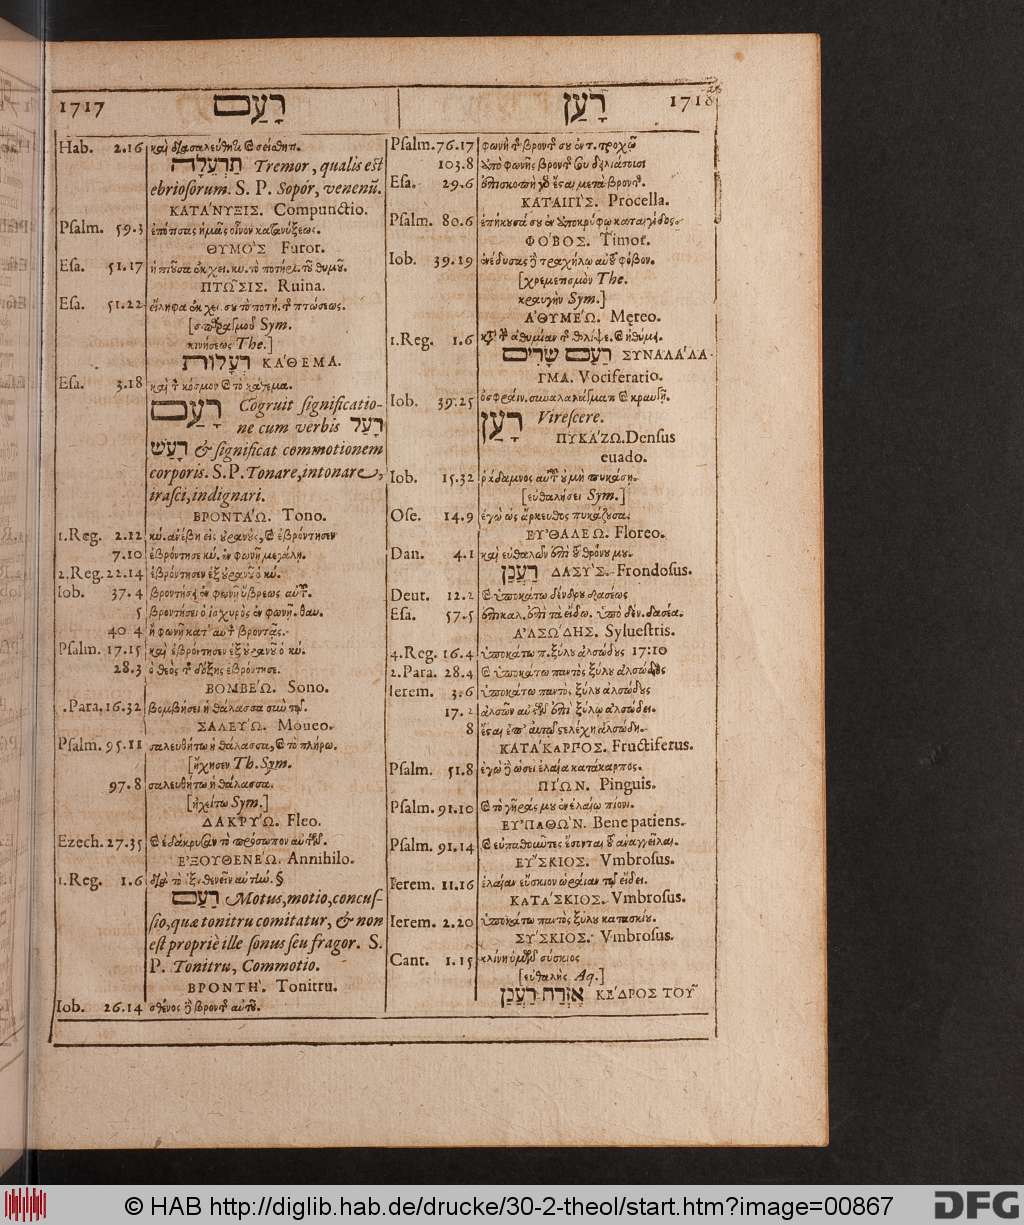 1717 רָעַם
רָעַן 1718
Hab. 2.16 καὶ διασαλεύθητι καὶ σείσθητι.
תַרְעֵלָה Tremor, qualis est
ebriosorum. S. P. Sopor, venenū.
ΚΑΤΆΝΥΞΙΣ. Compunctio.
Psalm. 59.3 ἐπότισας ἡμᾶς οἶνον κατανύξεως.
ΘΥΜῸΣ Furor.
Esa. 51.17 ἡ πιοῦσα ἐκ χει. κυ. τὸ ποτήρι. τοῦ θυμοῦ.
ΠΤΩ͂ΣΙΣ. Ruina.
Esa. 51.22 εἴληφα ἐκ χει. σου τὸ ποτή. τῆς πτώσεως.
Sym.
κινήσεως The.]
רְעָלוֹת ΚΆΘΕΜΑ.
Esa. 3.18 καὶ τὸν κόσμον καὶ τὸ κάθεμα.
רָעַם Cōgruit significatio-
ne cum verbis רָעַל
רָעַשׁ & significat commotionem
corporis. S. P. Tonare, intonare,
irasci, indignari.
ΒΡΟΝΤΆΩ. Tono.
1. Reg. 2.12 κύ. ἀνέβη εἰς οὐρανοὺς, καὶ ἐβρόντησεν
7.10 ἐβρόντησε κύ. ἐν φωνῇ μεγάλῃ.
2. Reg. 22.14 ἐβρόντησεν ἐξ οὐρανοῦ ὁ κύ.
Iob. 37.4 βροντήσει ἐν φωνῇ ὕβρεως αὐτοῦ.
5 βροντήσει ὁ ἰσχυρὸς ἐν φωνῇ. θαυ.
40 4 ἢ φωνῇ κατ' αὐτὸν βροντᾷς.
Psalm. 17.15 καὶ ἐβρόντησεν ἐξ οὐρανοῦ ὁ κύ.
28.3 ὁ θεὸς τῆς δόξης ἐβρόντησε.
ΒΟΜΒΈΩ. Sono.
.Para. 16.32 βομβήσει ἡ θάλασσα σὺν τῷ.
ΣΑΛΕΎΩ. Moueo.
Psalm. 95.11 σαλευθήτω ἡ θάλασσα, καὶ τὸ πλήρω.
[ἤχησεν Th. Sym.
97.8 σαλευθήτω ἡ θάλασσα.
[ἠχείτω Sym.]
ΔΑΚΡΎΩ. Fleo.
Ezech. 27.35 καὶ ἐδάκρυσεν τὸ πρόσωπον αὐτῶν.
ΕʼΞΟΥΘΕΝΈΩ. Annihilo.
1. Reg. 1.6 διὰ τὸ ἐξουθενεῖν αὐτήν. §
רַעַם Motus, motio, concus-
sio, quæ tonitru comitatur, & non
est propriè ille sonus seu fragor. S.
P. Tonitru, Commotio.
ΒΡΟΝΤῊ. Tonitru.
Iob. 26.14 σθένος δὲ βροντῆς αὐτοῦ.
Psalm. 76.17 φωνὴ τῆς βροντῆς σου ἐν τ. τροχῷ
103.8 ὑπὸ φωνῆς βροντῆς σου δειλιάσουσι
Esa. 29.6 ἐπισκοπὴ γὰρ ἔσται μετὰ βροντῆς.
ΚΑΤΑΙΓῚΣ. Procella.
Psalm. 80.6 ἐπήκουσά σου ἐν ἀποκρύφῳ καταιγίδος.
ΦΌΒΟΣ. Timor.
Iob. 39.19 ἐνέδυσας δὲ τραχήλῳ αὐτοῦ φόβον.
[χρεμετισμὸν The.
κραυγὴν Sym.]
ΑʼΘΥΜΈΩ. Mereo.
1. Reg. 1.6 κατὰ τὴν ἀθυμίαν τῆς θλίψε. καὶ ἠθύμει.
רַעַם שָׂרִים ΣΥΝΑΛΆΛΑ-
ΓΜΑ. Vociferatio.
Iob. 39.25
רָעַן Virescere.
ΠΥΚΆΖΩ. Densus
euado.
Iob. 15.32 ῥάδαμνος αὐτοῦ οὐ μὴ πυκάσῃ.
[εὐθαλήσει Sym.]
Ose. 14.9 ἐγὼ ὡς ἄρκευθος πυκάζουσα.
ΕΥʼΘΑΛΈΩ. Floreo.
Dan. 4.1 καὶ εὐθαλῶν ἐπὶ τοῦ θρόνου μου.
רַעֲנַן ΔΑΣῪΣ. Frondosus.
Deut. 12.2 καὶ ὑποκάτω δένδρου δασέως
Esa. 57.5 ἐπικαλ. ἐπὶ τὰ εἴδω. ὑπὸ δέν. δασέα.
ΑʼΛΣΏΔΗΣ. Syluestris.
4. Reg. 16.4 ὑποκάτω π. ξύλου ἀλσώδους 17:10
2. Para. 28.4 καὶ ὑποκάτω παντὸς ξύλου ἀλσώδους
Ierem. 3.6 ὑποκάτω παντὸς ξύλου ἀλσώδους
17.2 ἀλσῶν αὐτῶν ἐπὶ ξύλῳ ἀλσώδει.
8 ἔσται ἐπ' αὐτῷ στελέχη ἀλσώδη.
ΚΑΤΆΚΑΡΠΟΣ. Fructiferus.
Psalm. 51.8 ἐγὼ δὲ ὡσεὶ ἐλαία κατάκαρπος.
ΠΊΩΝ. Pinguis.
Psalm. 91.10 καὶ τὸ γῆράς μου ἐν ἐλαίῳ πίονι.
ΕΥʼΠΑΘΩ͂Ν. Bene patiens.
Psalm. 91.14 καὶ εὐπαθοῦντες ἔσονται τοῦ ἀναγγεῖλαι.
ΕΎΣΚΙΟΣ. Vmbrosus.
Ierem. 11.16 ἐλαίαν εὔσκιον ὡραίαν τῷ εἴδει.
ΚΑΤΆΣΚΙΟΣ. Vmbrosus.
Ierem. 2.20 ὑποκάτω παντὸς ξύλου κατασκίου.
ΣΎΣΚΙΟΣ. Vmbrosus.
Cant. 1.15 κλίνη ἡμῶν σύσκιος
[εὐθαλὴς Aq.]
אֶזְרַח רַעֲנַן ΚΈΔΡΟΣ ΤΟΥ͂
© HAB http://diglib.hab.de/drucke/30-2-theol/start.htm?image=00867
DFG